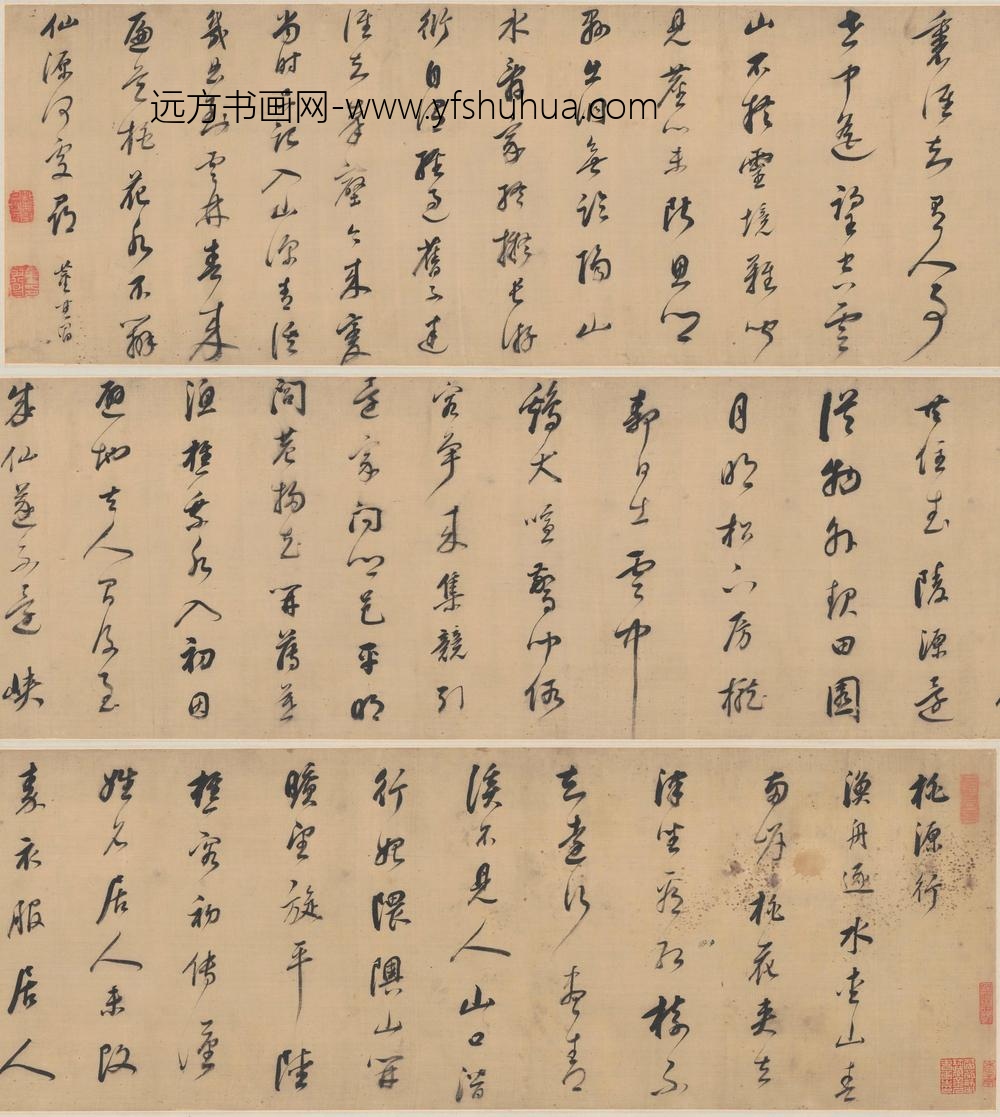 桃源行
漁舟逐水愛山春
兩岸桃花夾去
津坐看紅樹不
知遠行盡青
溪不見人山口潛
行始隈隩山開
曠望旋平陸
樵客初傳漢
姓名居人未改
秦衣服居人
共住武陵源還
從物外起田園
月明松下房櫳
靜日出雲中
雞犬喧驚聞俗
客爭來集競引
還家問都邑平明
閭巷掃花開薄暮
漁樵乘水入初因
避地去人間及至
成仙遂不還峽
裏誰知有人事
世中遙望空雲
山不疑靈境難聞
見塵心未盡思鄉
縣出洞無論隔山
水辭家終擬長游
衍自謂經過舊不迷
誰知峯壑今來變
當時只記入山深青溪
幾曲到雲林春來
遍是桃花水不辨
仙源何處尋 董其昌
远方书画网-www.yfshuhua.com